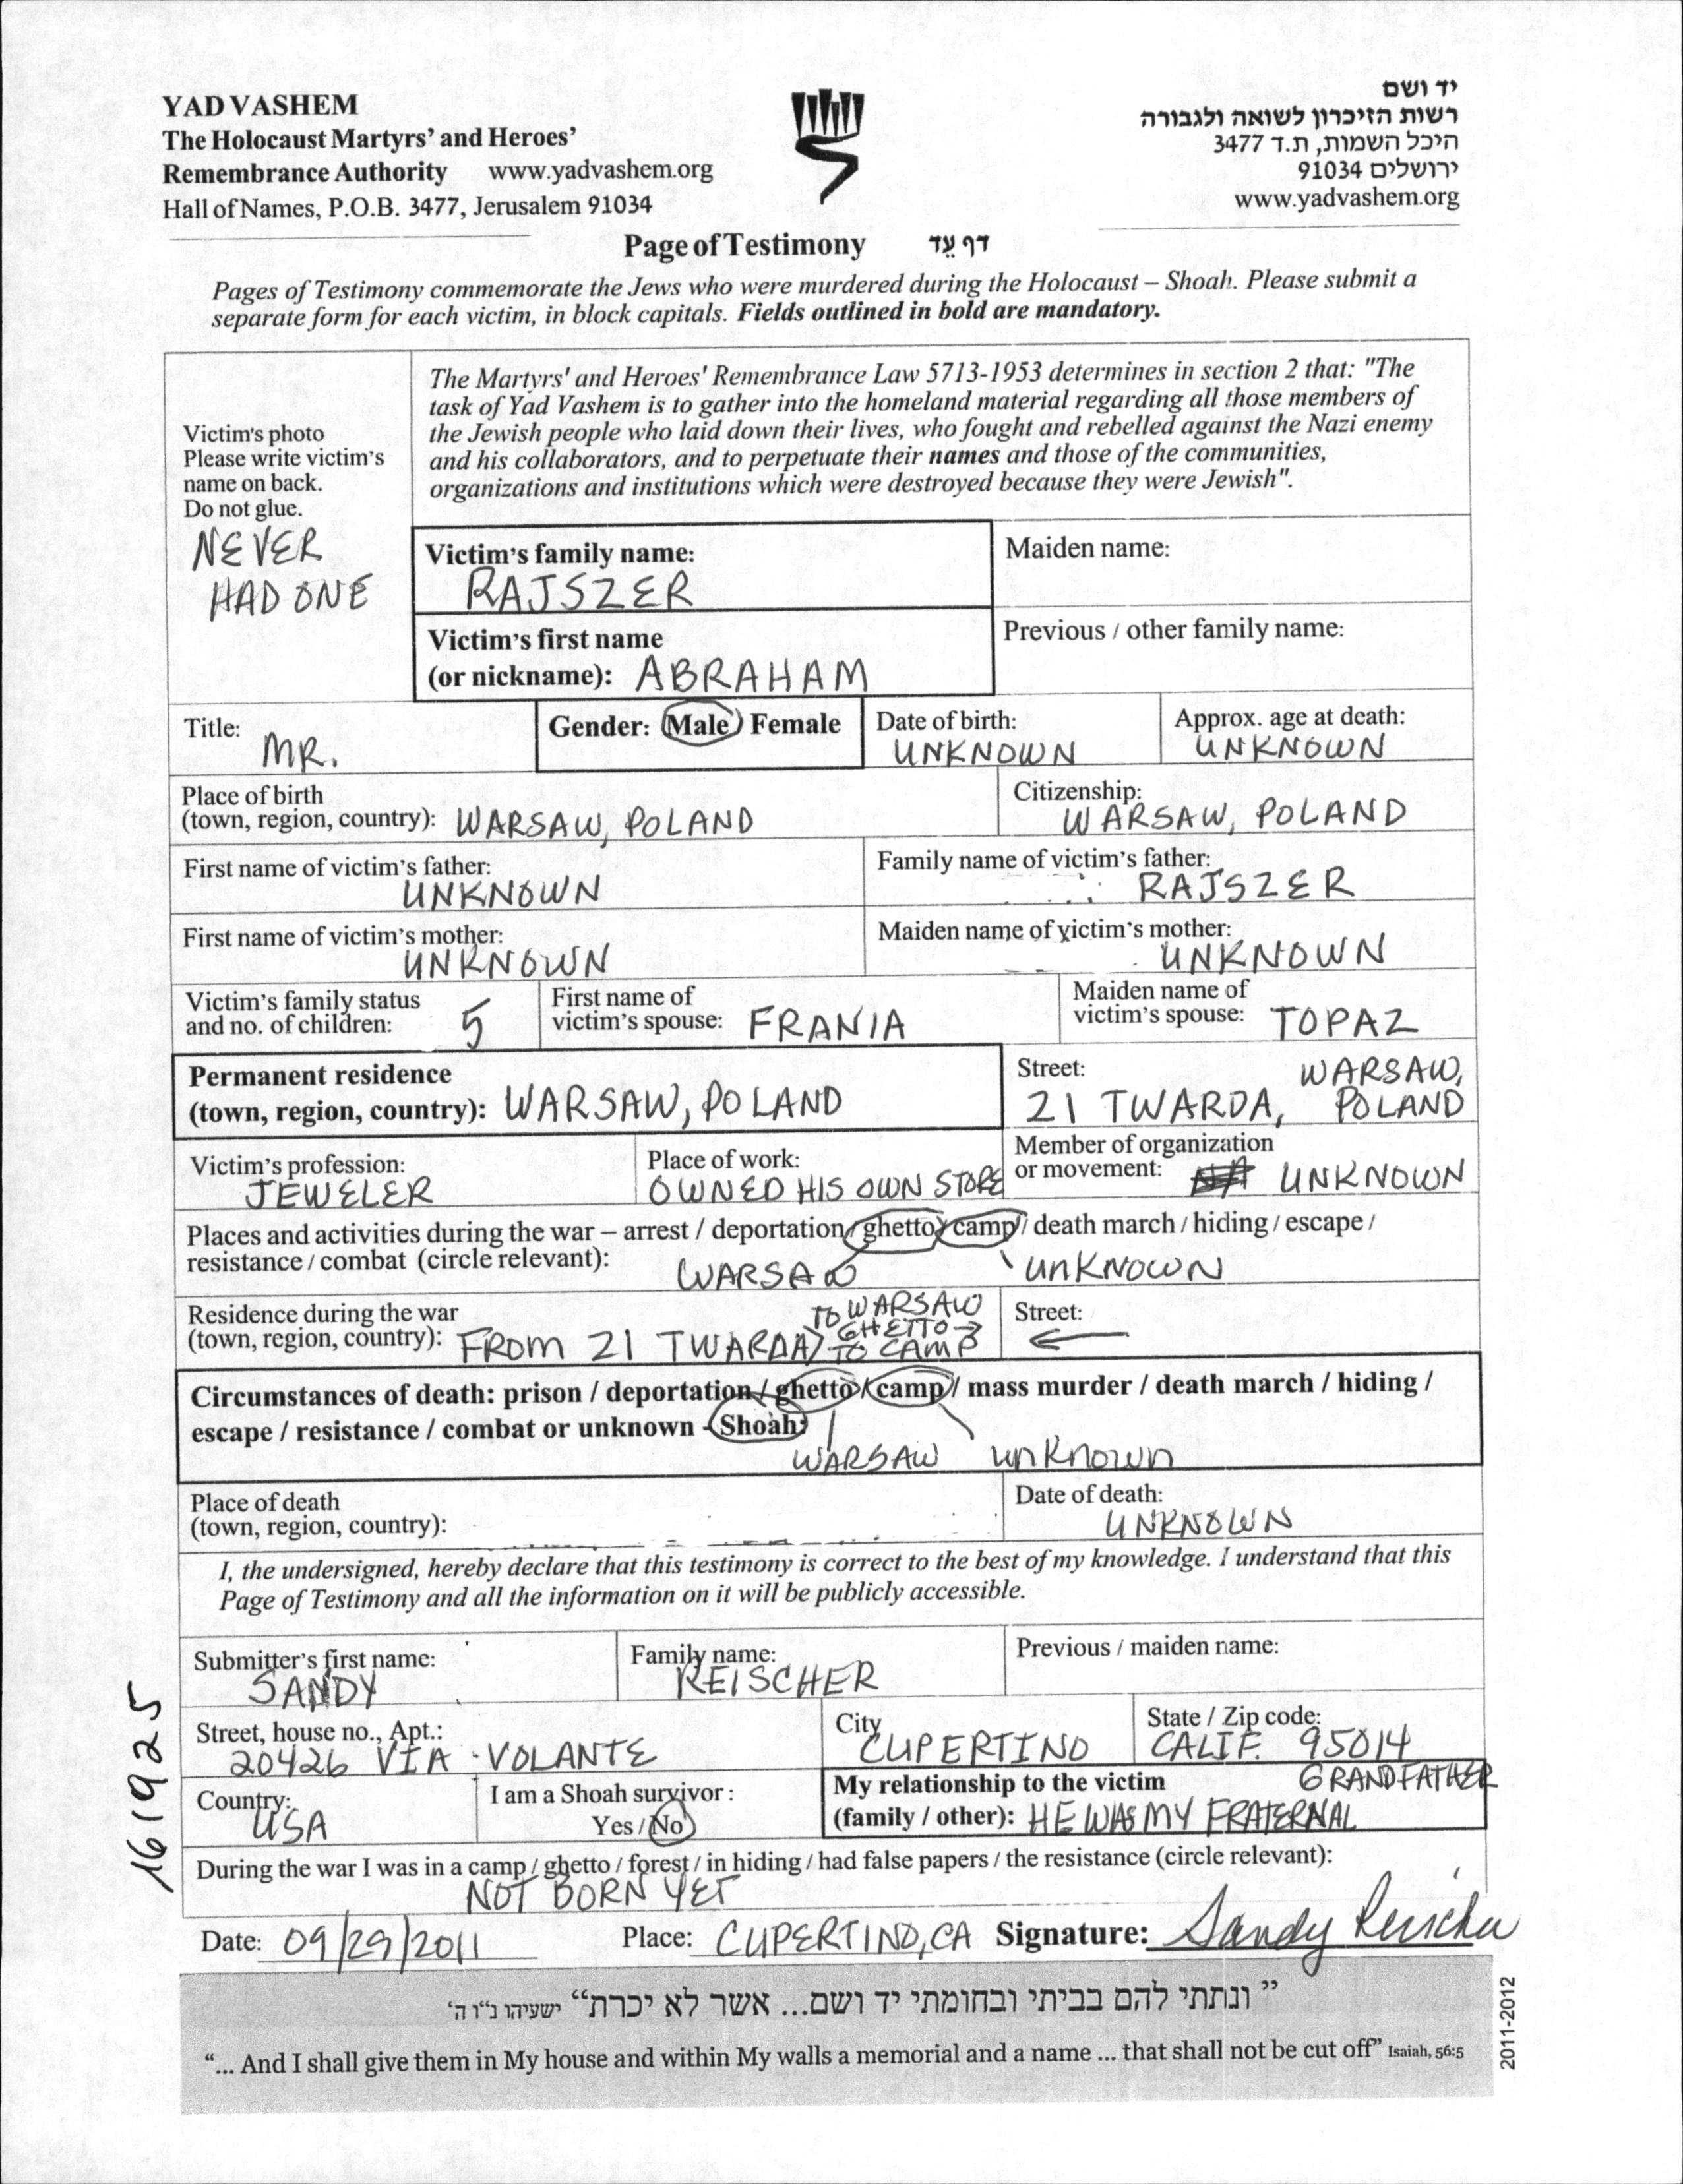 YAD VASHEM
The Holocaust Martyrs' and Heroes'
Remembrance Authority www.yadvashem.org
Hall of Names, P.O.B. 3477, Jerusalem 91034
יד ושם
רשות הזיכרון לשואה ולגבורה
היכל השמות, ת.ד 3477
ירושלים 91034
www.yadvashem.org
Page of Testimony דף עֵד
Pages of Testimony commemorate the Jews who were murdered during the Holocaust – Shoah. Please submit a
separate form for each victim, in block capitals. Fields outlined in bold are mandatory.
Victim's photo
Please write victim's
name on back.
Do not glue.
NEVER
HAD ONE
The Martyrs' and Heroes' Remembrance Law 5713-1953 determines in section 2 that: "The
task of Yad Vashem is to gather into the homeland material regarding all those members of
the Jewish people who laid down their lives, who fought and rebelled against the Nazi enemy
and his collaborators, and to perpetuate their names and those of the communities,
organizations and institutions which were destroyed because they were Jewish".
Victim's family name:
RAJSZER
Maiden name:
Victim's first name
(or nickname): ABRAHAM
Previous / other family name:
Title:
MR.
Gender: Male Female
Date of birth:
UNKNOWN
Approx. age at death:
UNKNOWN
Place of birth
(town, region, country): WARSAW, POLAND
Citizenship:
WARSAW, POLAND
First name of victim's father:
UNKNOWN
Family name of victim's father:
RAJSZER
First name of victim's mother:
UNKNOWN
Maiden name of victim's mother:
UNKNOWN
Victim's family status
and no. of children: 5
First name of
victim's spouse: FRANIA
Maiden name of
victim's spouse: TOPAZ
Permanent residence
(town, region, country): WARSAW, POLAND
Street: WARSAW,
21 TWARDA, POLAND
Victim's profession:
JEWELER
Place of work:
OWNED HIS OWN STORE
Member of organization
or movement: UNKNOWN
Places and activities during the war – arrest / deportation / ghetto / camp / death march / hiding / escape /
resistance / combat (circle relevant):
WARSAW UNKNOWN
Residence during the war
(town, region, country): FROM 21 TWARDA
TO WARSAW
GHETTO →
TO CAMP
Street:
←
Circumstances of death: prison / deportation / ghetto / camp / mass murder / death march / hiding /
escape / resistance / combat or unknown - Shoah:
WARSAW unknown
Place of death
(town, region, country):
Date of death:
UNKNOWN
I, the undersigned, hereby declare that this testimony is correct to the best of my knowledge. I understand that this
Page of Testimony and all the information on it will be publicly accessible.
Submitter's first name:
SANDY
Family name:
REISCHER
Previous / maiden name:
Street, house no., Apt.:
20426 VIA VOLANTE
City
CUPERTINO
State / Zip code:
CALIF. 95014
Country:
USA
I am a Shoah survivor :
Yes / No
My relationship to the victim GRANDFATHER
(family / other): HE WAS MY FRATERNAL
During the war I was in a camp / ghetto / forest / in hiding / had false papers / the resistance (circle relevant):
NOT BORN YET
Date: 09/29/2011 Place: CUPERTINO, CA Signature: Sandy Reischer
161925
” ונתתי להם בביתי ובחומתי יד ושם... אשר לא יכרת“ ישעיהו נ"ו ה'
“... And I shall give them in My house and within My walls a memorial and a name ... that shall not be cut off” Isaiah, 56:5
2011-2012